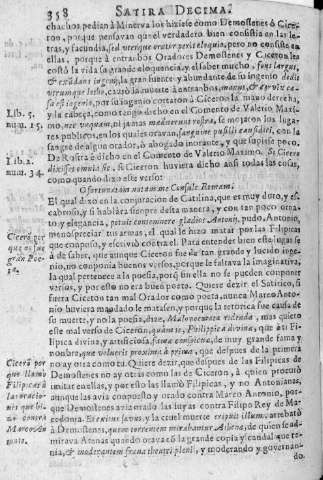 358 SATIRA DECIMA.
chachos pedian à Minerva los hiziese como Demostenes ò Cice-
ron, porque pensavan que el verdadero bien consistia en las le-
tras, y facundia, sed uterque orator perit eloquio, pero no consiste en
ellas, porque à entrambos Oradores Demostenes y Ciceron les
costò la vida su grande eloquencia, y el saber mucho,
ingenio, la gran fuente y abundante de su ingenio dedit
utrumque letho, causò la muerte à entrambos, manus,
est ingenio, por su ingenio cortaron à Ciceron la mano derecha,
y la cabeça, como tengo dicho en el Comento de Valerio Maxi-
mo, nec unquam, ni jamas maduerunt rostra, se mojaron los luga-
res publicos, en los quales oravan, sanguine pusilli causidici, con la
sangre de algun orador, ò abogado inorante, y que supiese poco.
De Rostra è dicho en el Comento de Valerio Maximo. Si Cicero
dixisset omnia sic, si Ciceron huviera dicho ansi todas las cosas,
como quando dixo este verso:
O fortunatam natam me Consule Romam.
El qual dixo en la conjuracion de Catilina, que es muy duro, y es-
cabroso, y si hablara siempre desta manera, y con tan poco orna-
to y elegancia, potuit contemnere gladios Antonij, pudo, Antonio,
menospreciar tus armas, el qual le hizo matar por las Filipicas
que compuso, y escrivio contra el. Para entender bien esto
à de saber, que aunque Ciceron fue de tan grande y lucido inge-
nio, no conponia buenos versos, porque le faltava la imaginativa,
la qual pertenece à la poesia, por que no se pueden conponer
versos, y por esto no era buen poeta. Quiere dezir el Satirico, si
fuera Ciceron tan mal Orador como poeta, nunca Marco Anto-
nio huviera mandado le matasen, porque la retorica fue causa de
su muerte, y no la poesia, dize, Malo ridenda, mas quiero
este mal verso de Ciceron, quam te, Philippica divina, que à ti Fi-
lipica divina, y artificiosa, famæ conspicuæ, de muy grande fama y
nombre, que volveris proxima à prima, que despues de la primera
no ay otra como tu. Quiere dezir, que despues de las Filipicas de
Demostenes no ay otras como las de Ciceron, à quien procurò
imitar en ellas, y por esto las llamò Filipicas, y no Antonianas,
aunque las avia conpuesto y orado contra Marco Antonio, por-
que Demostenes avia orado las suyas contra Filipo Rey de Ma-
cedonia. Et sævus exitus, y la cruel muerte eripuit illum, arrebatò
à Demostenes, quem torrentem mirabantur Athenæ, de quien se ad-
mirava Atenas quando orava cò la grande copia y caudal que te-
nia, & moderantem frena theatri pleni, y moderando y governan-
do.
Lib. 5.
num. 15.
Lib. 2.
num. 34.
Ciceron por
que no fue
gran Poe-
ta.
Ciceró por
que llamò
Filipicas à
las oracio-
nes que hi-
zo contra
Marco An-
tonio.